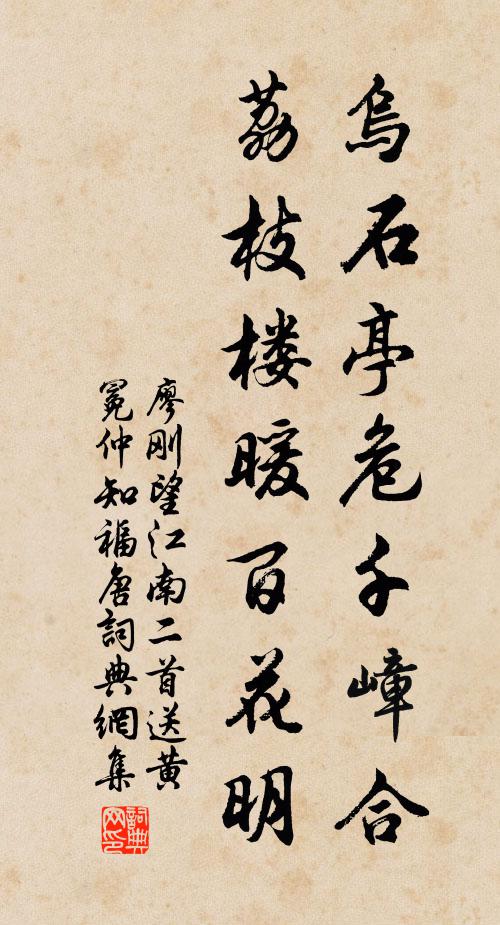 烏石亭危千嶂合
荔枝楼暖百花明
廖刚望江南二首送黄
冕仲知福唐詞典網集
詞典网印